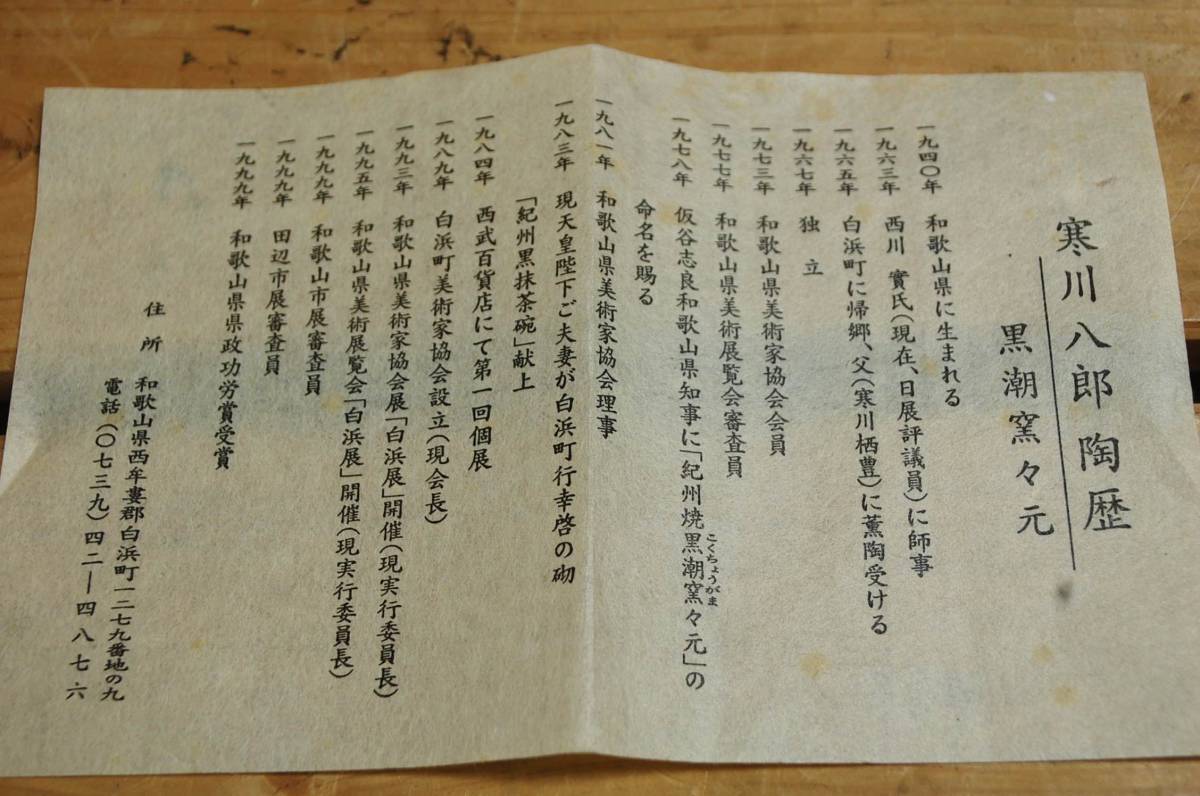 寒川八郎陶歴
黒潮窯々元
一九四〇年 和歌山県に生まれる
一九六三年 西川 實氏(現在、日展評議員)に師事
一九六五年 白浜町に帰郷、父(寒川栖豊)に薫陶受ける
一九六七年 独立
一九七三年 和歌山県美術家協会会員
一九七七年 和歌山県美術展覧会審査員
一九七八年 仮谷志良和歌山県知事に「紀州焼黒潮窯々元」の
こくちょうがま
命名を賜る
一九八一年 和歌山県美術家協会理事
一九八三年 現天皇陛下ご夫妻が白浜町行幸啓の砌
「紀州黒抹茶碗」献上
一九八四年 西武百貨店にて第一回個展
一九八九年 白浜町美術家協会設立(現会長)
一九九三年 和歌山県美術家協会展「白浜展」開催(現実行委員長)
一九九五年 和歌山県美術展覧会「白浜展」開催(現実行委員長)
一九九九年 和歌山市展審査員
一九九九年 田辺市展審査員
一九九九年 和歌山県県政功労賞受賞
住所 和歌山県西牟婁郡白浜町一二七九番地の九
電話(〇七三九)四二―四八七六